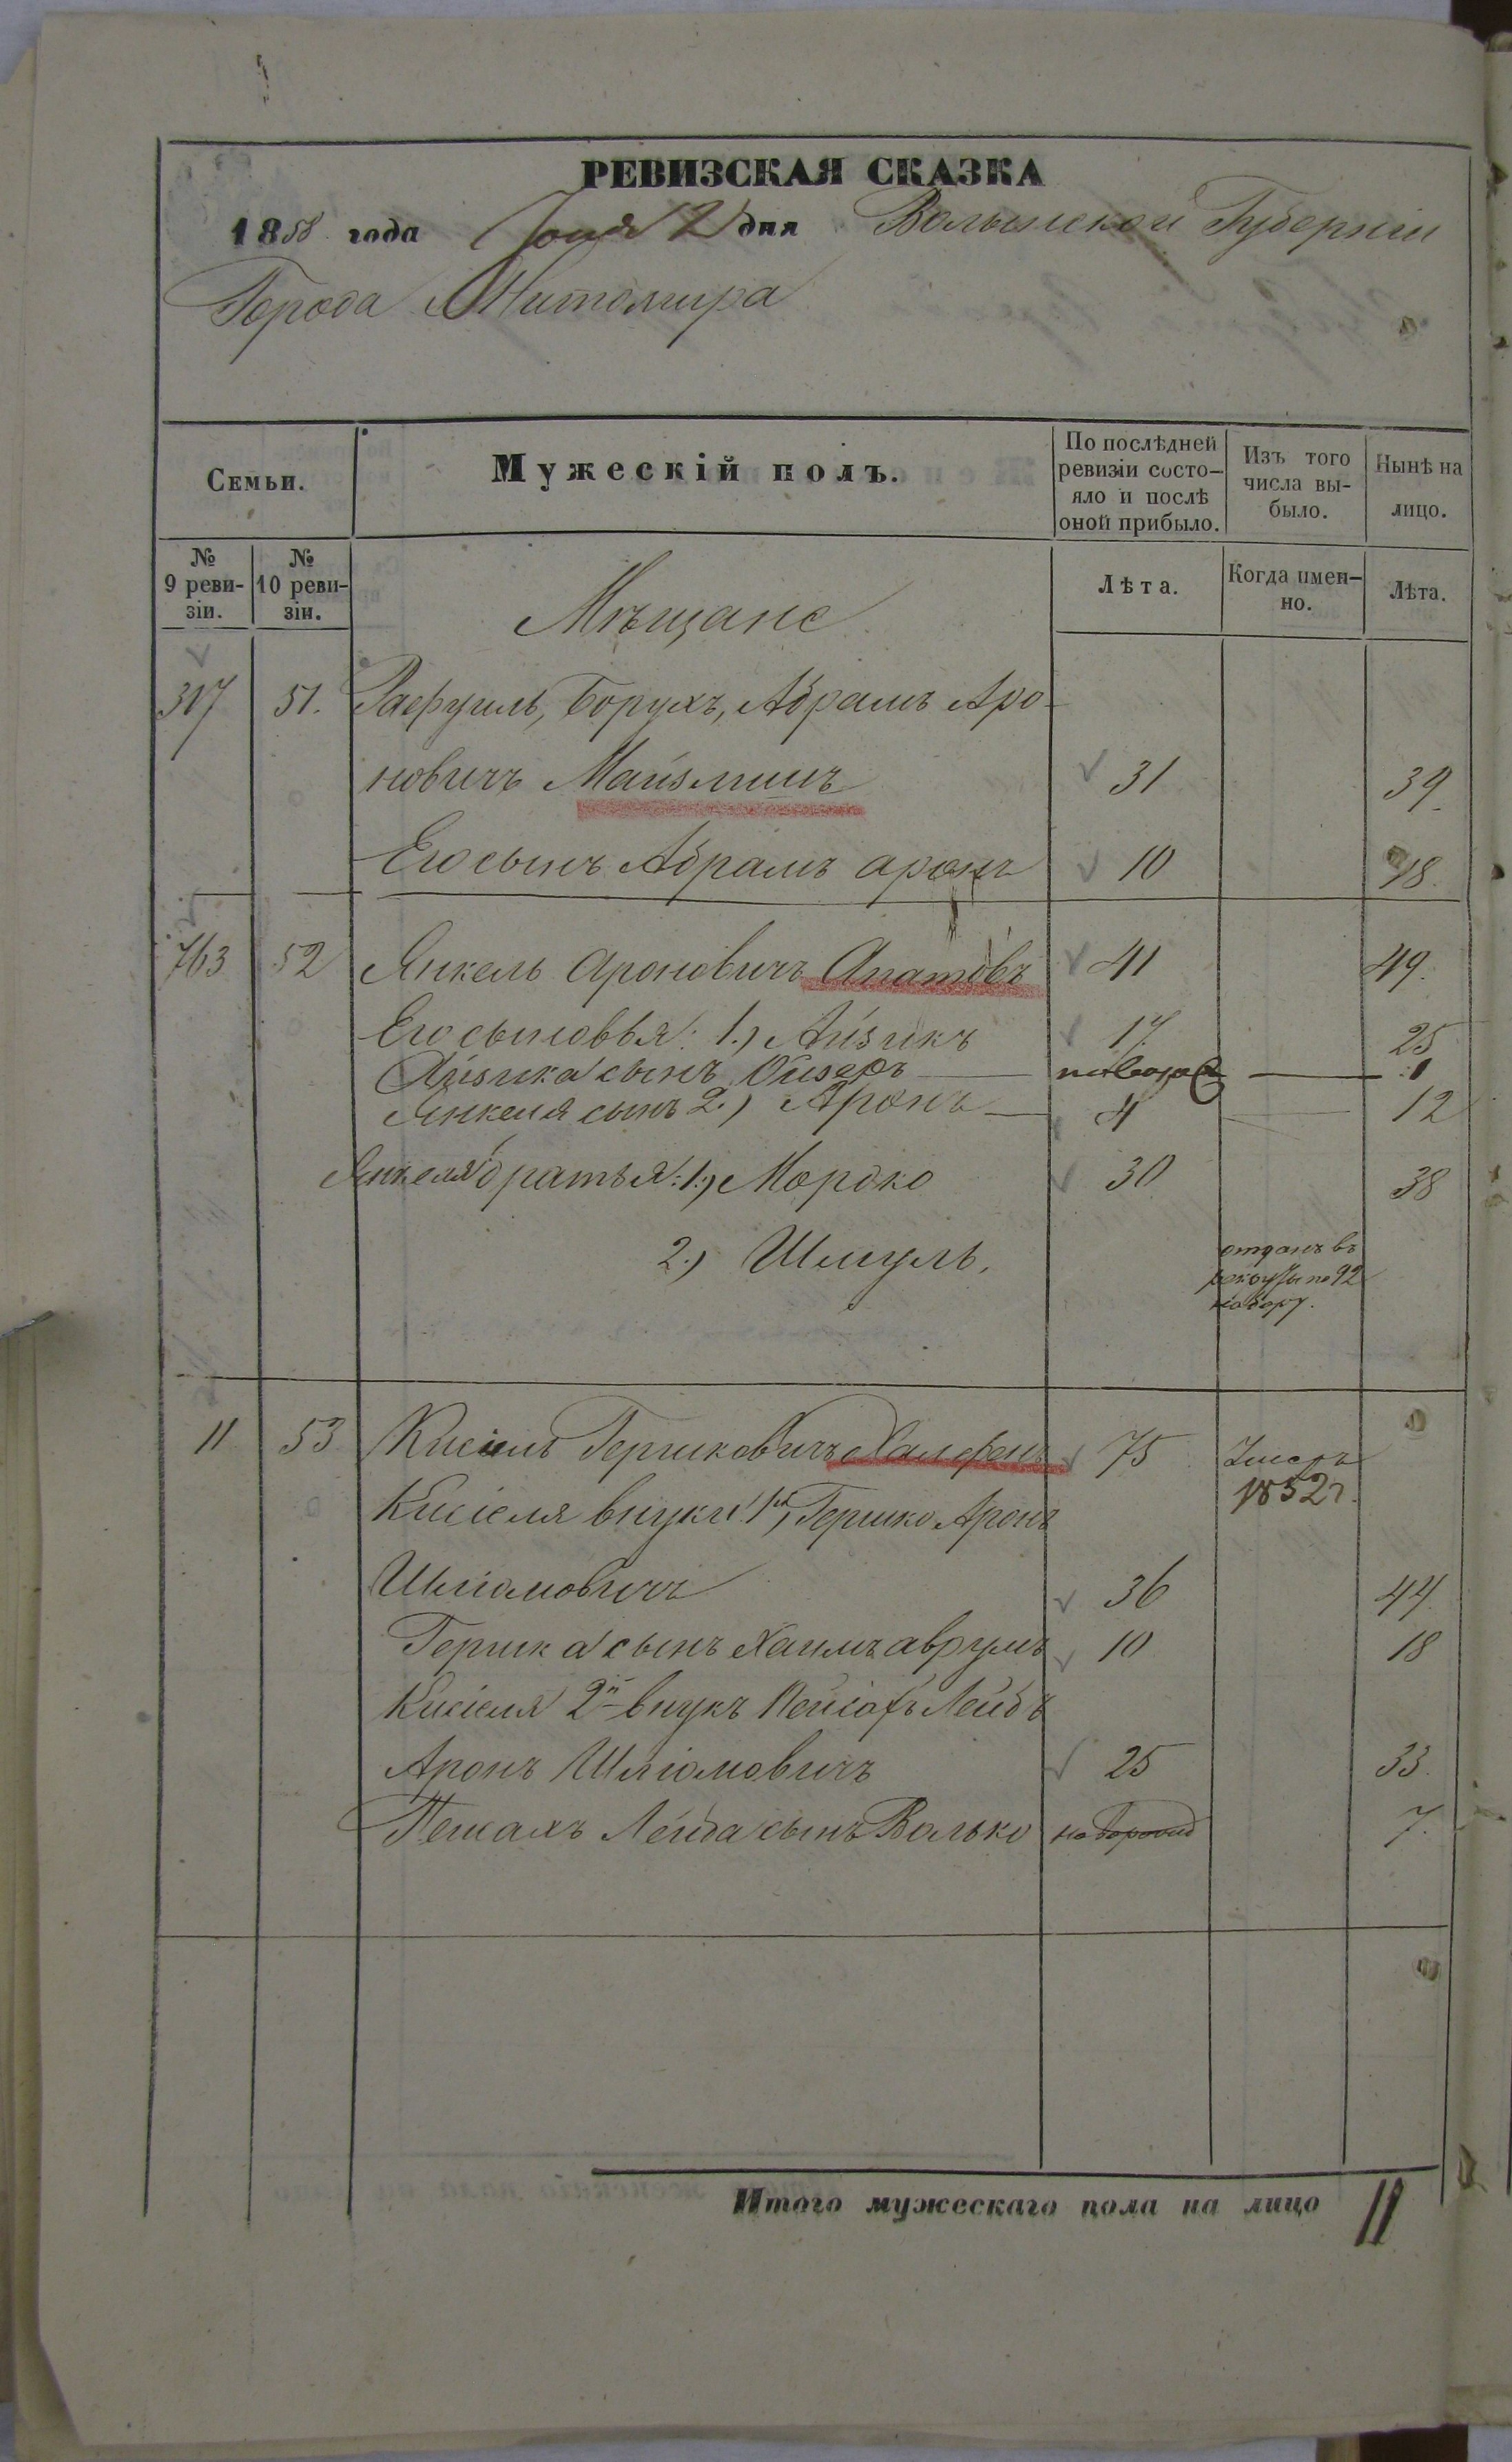 РЕВИЗСКАЯ СКАЗКА
1858 года Іюня 2 дня Волынской Губерніи
Города Житомира
Семьи.
Мужескій полъ.
По послѣдней ревизіи состо-
яло и послѣ
оной прибыло.
Изъ того
числа вы-
было.
Нынѣ на
лицо.
№
9 реви-
зіи.
№
10 реви-
зіи.
Лѣта.
Когда имен-
но.
Лѣта.
Мѣщане
317 51. Рафуиль, Борухъ, Абрамъ Аро-
новичъ Майзлишъ 31 39
Его сынъ Абрамъ аронъ 10 18
763 52 Янкель Ароновичъ Апатовъ 41 49
Его сыновья: 1.) Айзикъ 17 25
Айзика сынъ Ойзеръ 1
Янкеля сынъ 2.) Аронъ 4 12
Янкеля братья: 1.) Мордко 30 38
2.) Шмуль,
отданъ въ
рекруты по 92
набору.
11 53 Кисіель Гершковичъ Халфенъ 75 Умеръ
1852г.
Кисіеля внуки 1й, Гершко Аронъ
Шліомовичъ 36 44
Гершка сынъ Хаимъ аврумъ 10 18
Кисіеля 2й внукъ Пейсахъ Лейбъ
Аронъ Шліомовичъ 25 33.
Пешахъ Лейба сынъ Волько 7.
Итого мужескаго пола на лицо 11